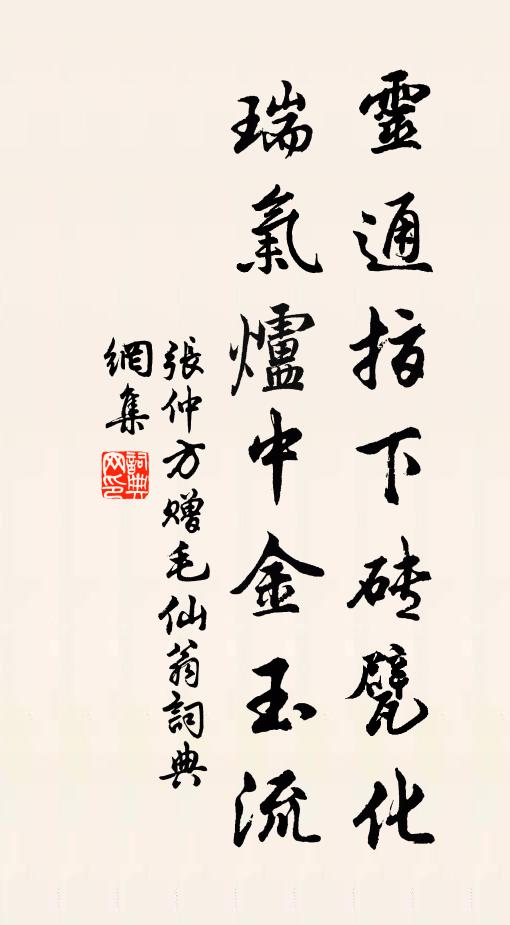 靈通指下磚甓化
瑞氣爐中金玉流
張仲方贈毛仙翁詞典
網集
詞典網印